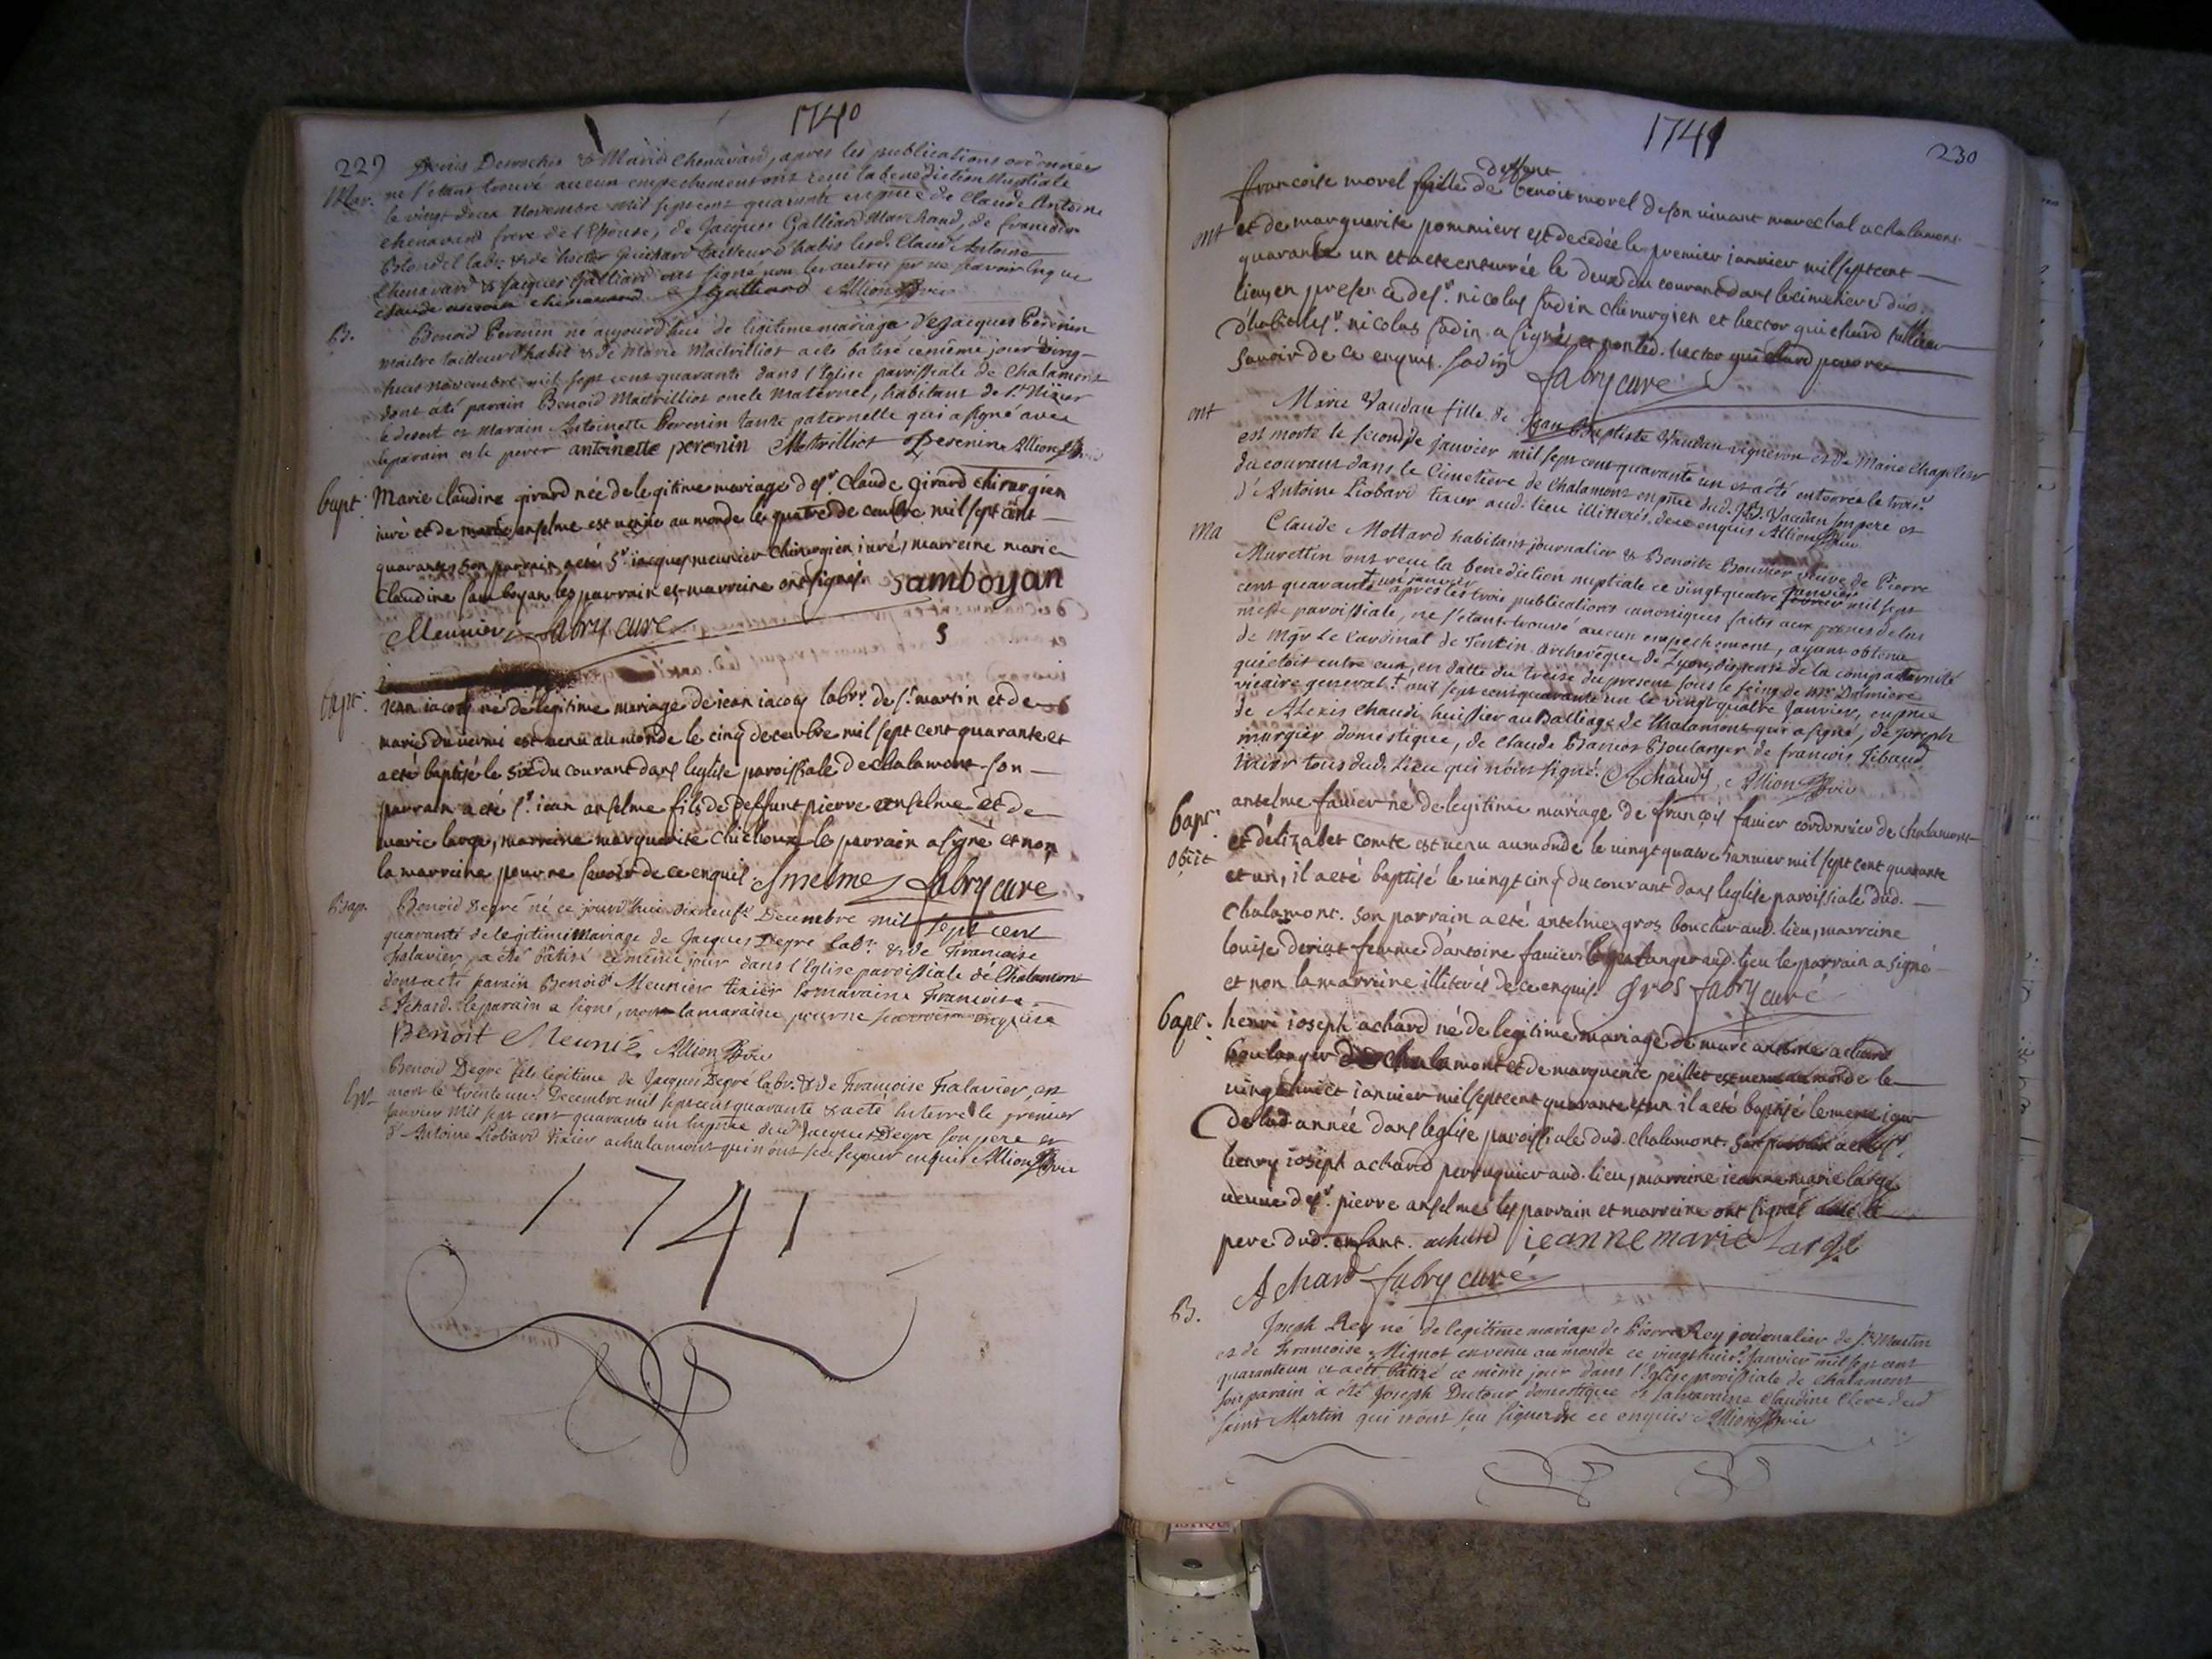 1740
229
Denis Desroches & Marie Chenavard, apres les publications ordonnées
Mar. ne s'etant trouvé aucun empechement ont recu la benediction Nuptiale
le vingt deux Novembre mil sept cent quarante en pnce de Claude Antoine
chenavard frere de l'Epouse, de Jacques Galliard Marchand, de francois
Blondel labr. & de hector Guichard tailleur d'habis lesd. Claude Antoine
Chenavard & Jacques Galliard ont signé non les autres pr ne scavoir enquis
claude antoine chenavard J Galliard Allion Vic
B. Benoid Perenin né aujourd'hui de legitime mariage de Jacques Perenin
maitre tailleur d'habit & de Marie Maitrilliot a eté batisé ce même jour ving-
huit novembre mil sept cent quarante dans l'Eglise paroissiale de Chalamont
dont a été parain Benoid Maitrilliot oncle Maternel, habitant de St. Nizier
le desert et Maraine Antoinette Perenin tante paternelle qui a signé avec
le parain et le perer antoinette perenin Metrilliot Perenin Allion Vic
bapt. Marie claudine girard née de legitime mariage de sr. Claude girard chirurgien
iuré et de marie anselme est venue au monde le quatre decembre mil sept cent
quarante son parrain a eté sr iacques meunier chirurgien iuré, marreine marie
claudine samboyan les parrain et marreine ont signés samboyan
Meunier fabry curé
bapt. iean iacoty né de legitime mariage de iean iacoty labr. de st. martin et de
marie du verni est venu au monde le cinq decembre mil sept cent quarante et
a eté baptisé le six du courant dans leglise paroissiale de chalamont son
parrain a eté sr. iean anselme fils de deffunt pierre anselme et de
marie large, marreine marguerite chielloux le parrain a signé et non
la marreine pour ne savoir de ce enquis Anselme fabry curé
Bap. Benoid Degré né ce jourd'hui dixneufe Decembre mil sept cent
quarante de legitime mariage de Jacques Degré labr. & de Francoise
Falavier, a été bâtisé ce même jour dans l'Eglise paroissiale de Chalamont
dont a eté parain Benoid Meunier tixier & maraine Francoise
Achard. le parain a signé, non la maraine pour ne scavoir enquise
Benoit Meunié Allion Vic
Benoid Degré fils legitime de Jacques Degré labr. & de Francoise Falavier, est
mort le trente une Decembre mil sept cent quarante & a eté enterré le premier
Janvier mil sept cent quarante un en pnce dud Jacques Degré son pere et
d'Antoine Liobard tixier a chalamont qui n'ont sçu signer enquis Allion Vic
1741
1741
230
francoise morel fille de deffunt benoit morel de son vivant marechal a chalamont
ont et de marguerite pommiere est decedée le premier ianvier mil sept cent
quarante un et a eté enterrée le deux du courant dans le cimetiere dud.
lieu, en presence de sr. nicolas sadin chirurgien et hector guichard tallieur
d'habit le sr. nicolas sadin a signé, et non led. hector guichard pour ne
savoir de ce enquis. Sadin fabry curé
ont Marie Vaudan fille de Jean Baptiste Vaudan vigneron et de Marie Chapelier
est morte le second de janvier mil sept cent quarante un et a été enterrée le trois
du courant dans le Cimetiere de Chalamont en pnce dud. J.B. Vaudan son pere et
d'Antoine Liobard tixier aud. lieu illitteres de ce enquis Allion Vic
ma Claude Mottard habitant journalier & Benoite Bouvier veuve de Pierre
Murettin ont recu la benediction nuptiale ce vingt quatre janvier mil sept
cent quarante un après les trois publications canoniques faites aux prones de la
messe paroissiale, ne s'étant trouvé aucun empechement, ayant obtenu
de Mgr le Cardinal de Tentin Archevêque de Lyon dispense de la compaternité
qui étoit entre eux, en datte du treize du present sous le seing de Mr Dalmiere
vicaire general. mil sept cent quarante un le vingt quatre janvier, en pnce
de Alexis Chaudi huissier au Balliage de Chalamont qui a signé, de Joseph
murgier domestique, de Claude Bamos Boulanger de francois Tibaud
tixier tous dud. lieu qui n'ont signé. AChaudy Allion Vic
bapt. anselme favier né de legitime mariage de françois favier cordonnier de chalamont
obiit et delizabet comte est venu au monde le vingt quatre ianvier mil sept cent quarante
et un, il a eté baptisé le vingt cinq du courant dans leglise paroissiale dud.
chalamont. son parrain a eté anselme gros boucher aud. lieu, marreine
louise deriat femme d'antoine favier boulanger aud. lieu le parrain a signé
et non la marreine illiterés de ce enquis. Gros fabry curé
bapt. henri ioseph achard né de legitime mariage de marc antoine achard
boulanger de chalamont et de marguerite peillet est venu au monde le
vingt huict ianvier mil sept cent quarante et un il a eté baptisé le meme iour
de lad. année dans leglise paroissiale dud. chalamont. son parrain a eté sr.
henry ioseph achard perruquier aud. lieu, marreine ieanne marie large
veuve de sr. pierre anselme les parrain et marreine ont signés avec le
pere dud. enfant. achard ieanne marie Large
Achard fabry curé
B. Joseph Rey né de legitime mariage de Pierre Rey journalier de St. Martin
et de Francoise Mignot est venu au monde ce vingt huit Janvier mil sept cent
quarante un et a eté batizé ce même jour dans l'Eglise paroissiale de Chalamont
son parain a été Joseph Dutour domestique et sa maraine Claudine Clere dud
Saint Martin qui n'ont sçu signer de ce enquis Allion Vic